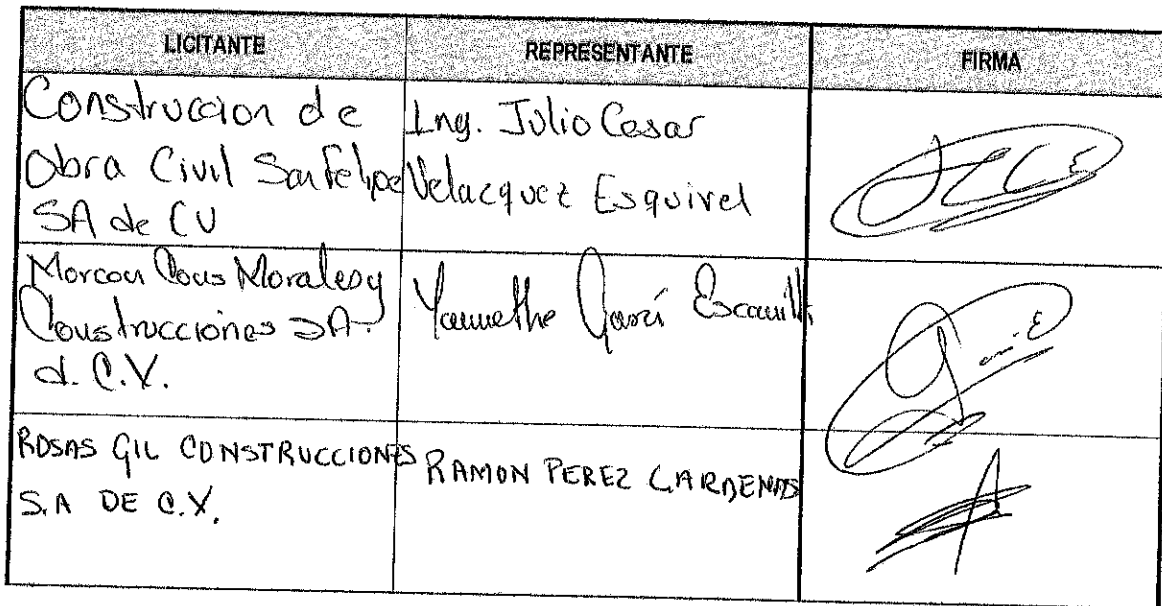 LICITANTE REPRESENTANTE FIRMA
Construccion de
Obra Civil San Felipe
SA de CV
Ing. Julio Cesar
Velacquez Esquivel
Morales y
Construcciones SA
d. C.V.
ROSAS GIL CONSTRUCCIONES
S.A DE C.V.
RAMON PEREZ CARDENAS